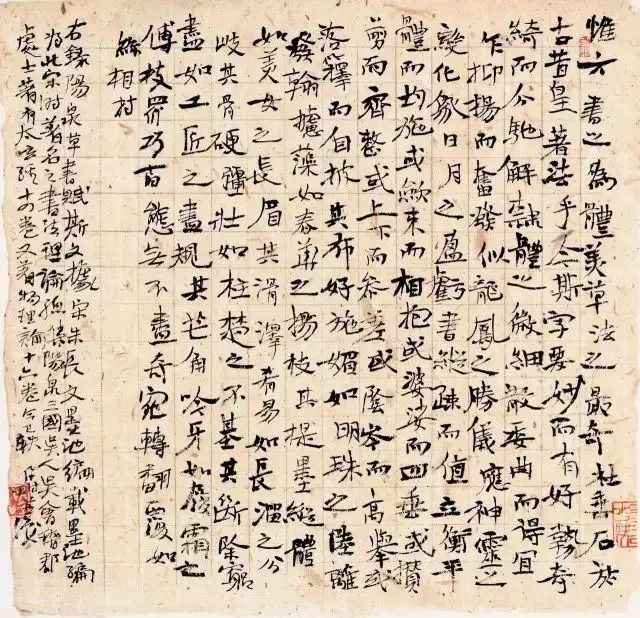 惟六書之為體美草法之最奇杜垂名於
古昔皇著法乎今斯字要妙而有好勢奇
綺而分馳解隸體之微細散委曲而得宜
乍抑揚而奮發似龍鳳之勝儀應神靈之
變化象日月之盈虧書縱疎而值立衡平
體而均施或斂束而相抱或婆娑而四垂或攢
剪而齊整或上下而參差或陰岑而高舉或
落籜而自披其布好施媚如明珠之陸離
發翰攄藻如春華之揚枝其提墨縱體
如美女之長眉其滑澤肴易如長溜之分
歧其骨硬彊壯如柱礎之不基其斷除窮
盡如工匠之盡規其芒角吟牙如嚴霜之
傅枝眾巧百態無不盡奇宛轉翻覆如
絲相持
右錄陽泉草書賦斯文據宋朱長文墨池編載墨池編
為此宋時著名之書法理論總集陽泉三國吳人吳會稽郡
處士著有太玄經十四卷又著物理論十六卷今已軼